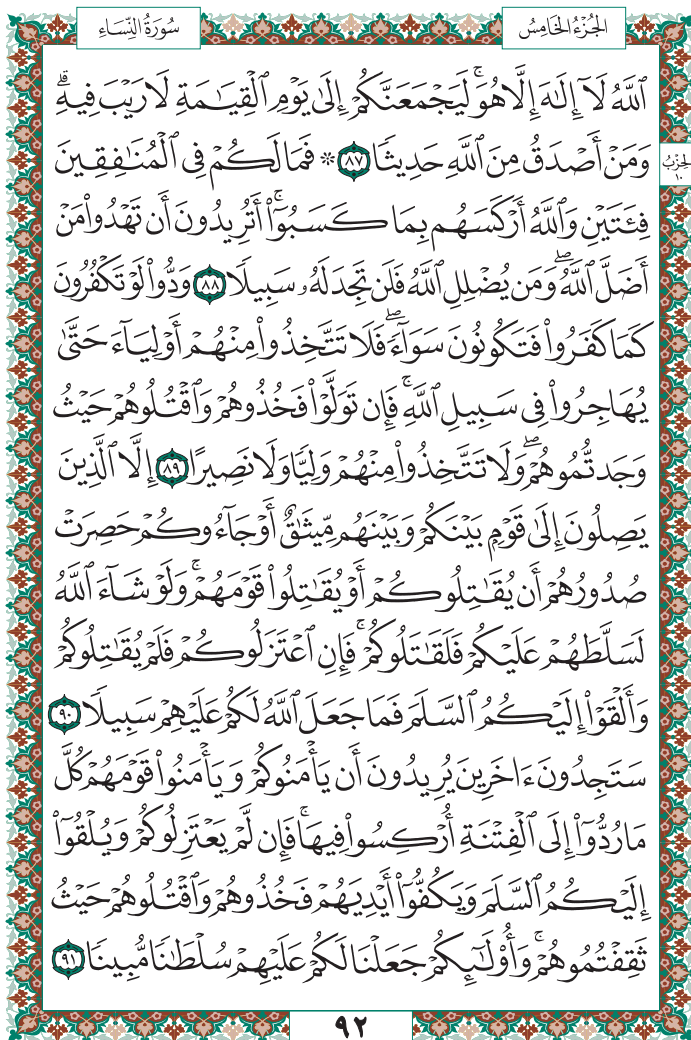 سُورَةُ النِّسَاءِ
الجُزْءُ الخَامِسُ
ٱللَّهُ لَآ إِلَٰهَ إِلَّا هُوَۚ لَيَجۡمَعَنَّكُمۡ إِلَىٰ يَوۡمِ ٱلۡقِيَٰمَةِ لَا رَيۡبَ فِيهِۗ
وَمَنۡ أَصۡدَقُ مِنَ ٱللَّهِ حَدِيثٗا ٨٧ ۞ فَمَا لَكُمۡ فِي ٱلۡمُنَٰفِقِينَ
الحِزْبُ
١٠
فِئَتَيۡنِ وَٱللَّهُ أَرۡكَسَهُم بِمَا كَسَبُوٓاْۚ أَتُرِيدُونَ أَن تَهۡدُواْ مَنۡ
أَضَلَّ ٱللَّهُۖ وَمَن يُضۡلِلِ ٱللَّهُ فَلَن تَجِدَ لَهُۥ سَبِيلٗا ٨٨ وَدُّواْ لَوۡ تَكۡفُرُونَ
كَمَا كَفَرُواْ فَتَكُونُونَ سَوَآءٗۖ فَلَا تَتَّخِذُواْ مِنۡهُمۡ أَوۡلِيَآءَ حَتَّىٰ
يُهَاجِرُواْ فِي سَبِيلِ ٱللَّهِۚ فَإِن تَوَلَّوۡاْ فَخُذُوهُمۡ وَٱقۡتُلُوهُمۡ حَيۡثُ
وَجَدتُّمُوهُمۡۖ وَلَا تَتَّخِذُواْ مِنۡهُمۡ وَلِيّٗا وَلَا نَصِيرًا ٨٩ إِلَّا ٱلَّذِينَ
يَصِلُونَ إِلَىٰ قَوۡمِۭ بَيۡنَكُمۡ وَبَيۡنَهُم مِّيثَٰقٌ أَوۡ جَآءُوكُمۡ حَصِرَتۡ
صُدُورُهُمۡ أَن يُقَٰتِلُوكُمۡ أَوۡ يُقَٰتِلُواْ قَوۡمَهُمۡۚ وَلَوۡ شَآءَ ٱللَّهُ
لَسَلَّطَهُمۡ عَلَيۡكُمۡ فَلَقَٰتَلُوكُمۡۚ فَإِنِ ٱعۡتَزَلُوكُمۡ فَلَمۡ يُقَٰتِلُوكُمۡ
وَأَلۡقَوۡاْ إِلَيۡكُمُ ٱلسَّلَمَ فَمَا جَعَلَ ٱللَّهُ لَكُمۡ عَلَيۡهِمۡ سَبِيلٗا ٩٠
سَتَجِدُونَ ءَاخَرِينَ يُرِيدُونَ أَن يَأۡمَنُوكُمۡ وَيَأۡمَنُواْ قَوۡمَهُمۡ كُلَّ
مَا رُدُّوٓاْ إِلَى ٱلۡفِتۡنَةِ أُرۡكِسُواْ فِيهَاۚ فَإِن لَّمۡ يَعۡتَزِلُوكُمۡ وَيُلۡقُوٓاْ
إِلَيۡكُمُ ٱلسَّلَمَ وَيَكُفُّوٓاْ أَيۡدِيَهُمۡ فَخُذُوهُمۡ وَٱقۡتُلُوهُمۡ حَيۡثُ
ثَقِفۡتُمُوهُمۡۚ وَأُوْلَٰٓئِكُمۡ جَعَلۡنَا لَكُمۡ عَلَيۡهِمۡ سُلۡطَٰنٗا مُّبِينٗا ٩١
٩٢